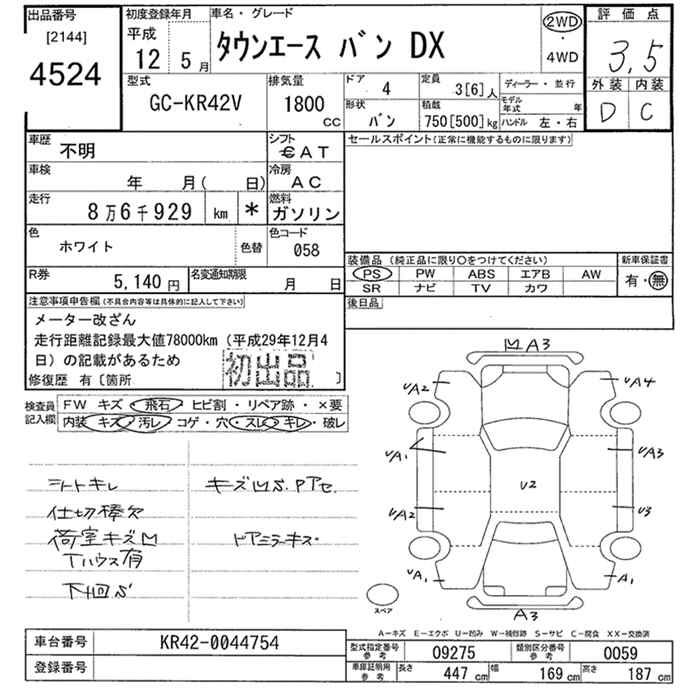 出品番号
[2144]
4524
初度登録年月
平成
12 5月
車名・グレード
タウンエース バン DX
2WD
・
4WD
評価点
3,5
外装 内装
D C
型式
GC-KR42V
排気量
1800 CC
ドア
4
定員
3[6]人
形状
バン
積載
750[500]kg
ディーラー・並行
モデル年式 年
ハンドル 左・右
車歴
不明
シフト
CAT
車検
年 月( 日)
冷房
AC
走行
8万6千929 km *
燃料
ガソリン
色
ホワイト
色替
色コード
058
R券
5,140円
名変通知期限
月 日
セールスポイント(正常に機能するものに限ります)
装備品(純正品に限り○をつけてください)
PS PW ABS エアB AW
SR ナビ TV カワ
新車保証書
有・無
後日品
注意事項申告欄(不具合内容等は具体的に記入して下さい)
メーター改ざん
走行距離記録最大値78000km(平成29年12月4
日)の記載があるため
修復歴 有〔箇所 〕
初出品
検査員
記入欄
FW キズ・飛石・ヒビ割・リペア跡・×要
内装・キズ・汚レ・コゲ・穴・スレ・キレ・破レ
シートキレ
仕切棒欠
荷室キズM
Tハウス有
下回S
キズMS.Pアセ
ドアミラーキズ
M A3
UA2
UA4
UA1
UA3
U2
UA2
U3
UA1
A1
A3
スペア
A-キズ E-エクボ U-凹み W-補修跡 S-サビ C-腐食 XX-交換済
車台番号
KR42-0044754
登録番号
型式指定番号
参考
09275
類別区分番号
参考
0059
車庫証明用
参考
長さ 447 cm
幅 169 cm
高さ 187 cm